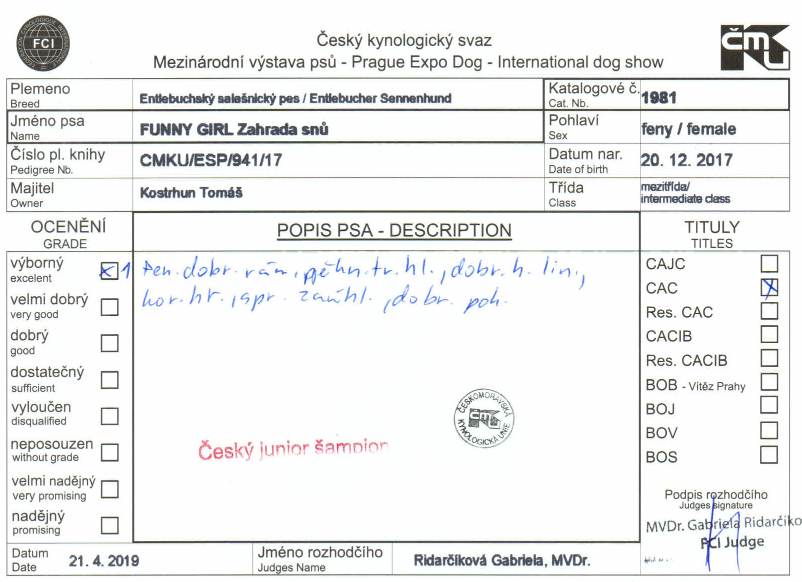 FCI
Český kynologický svaz
Mezinárodní výstava psů - Prague Expo Dog - International dog show
ČMKU
Plemeno
Breed
Entlebuchský salašnický pes / Entlebucher Sennenhund
Katalogové č.
Cat. Nb.
1981
Jméno psa
Name
FUNNY GIRL Zahrada snů
Pohlaví
Sex
feny / female
Číslo pl. knihy
Pedigree Nb.
CMKU/ESP/941/17
Datum nar.
Date of birth
20. 12. 2017
Majitel
Owner
Kostrhun Tomáš
Třída
Class
mezitřída/
intermediate class
OCENĚNÍ
GRADE
POPIS PSA - DESCRIPTION
TITULY
TITLES
výborný
excelent
x 1
velmi dobrý
very good
dobrý
good
dostatečný
sufficient
vyloučen
disqualified
neposouzen
without grade
velmi nadějný
very promising
nadějný
promising
dobr. rám, pěkn. tv. hl., dobr. h. lin.,
kor. hr., spr. zaúhl., dobr. poh.
ČESKOMORAVSKÁ
ČMKU
KYNOLOGICKÁ UNIE
Český junior šampion
CAJC
CAC
x
Res. CAC
CACIB
Res. CACIB
BOB - Vítěz Prahy
BOJ
BOV
BOS
Podpis rozhodčího
Judges signature
MVDr. Gabriela Ridarčíko
FCI Judge
Datum
Date
21. 4. 2019
Jméno rozhodčího
Judges Name
Ridarčíková Gabriela, MVDr.